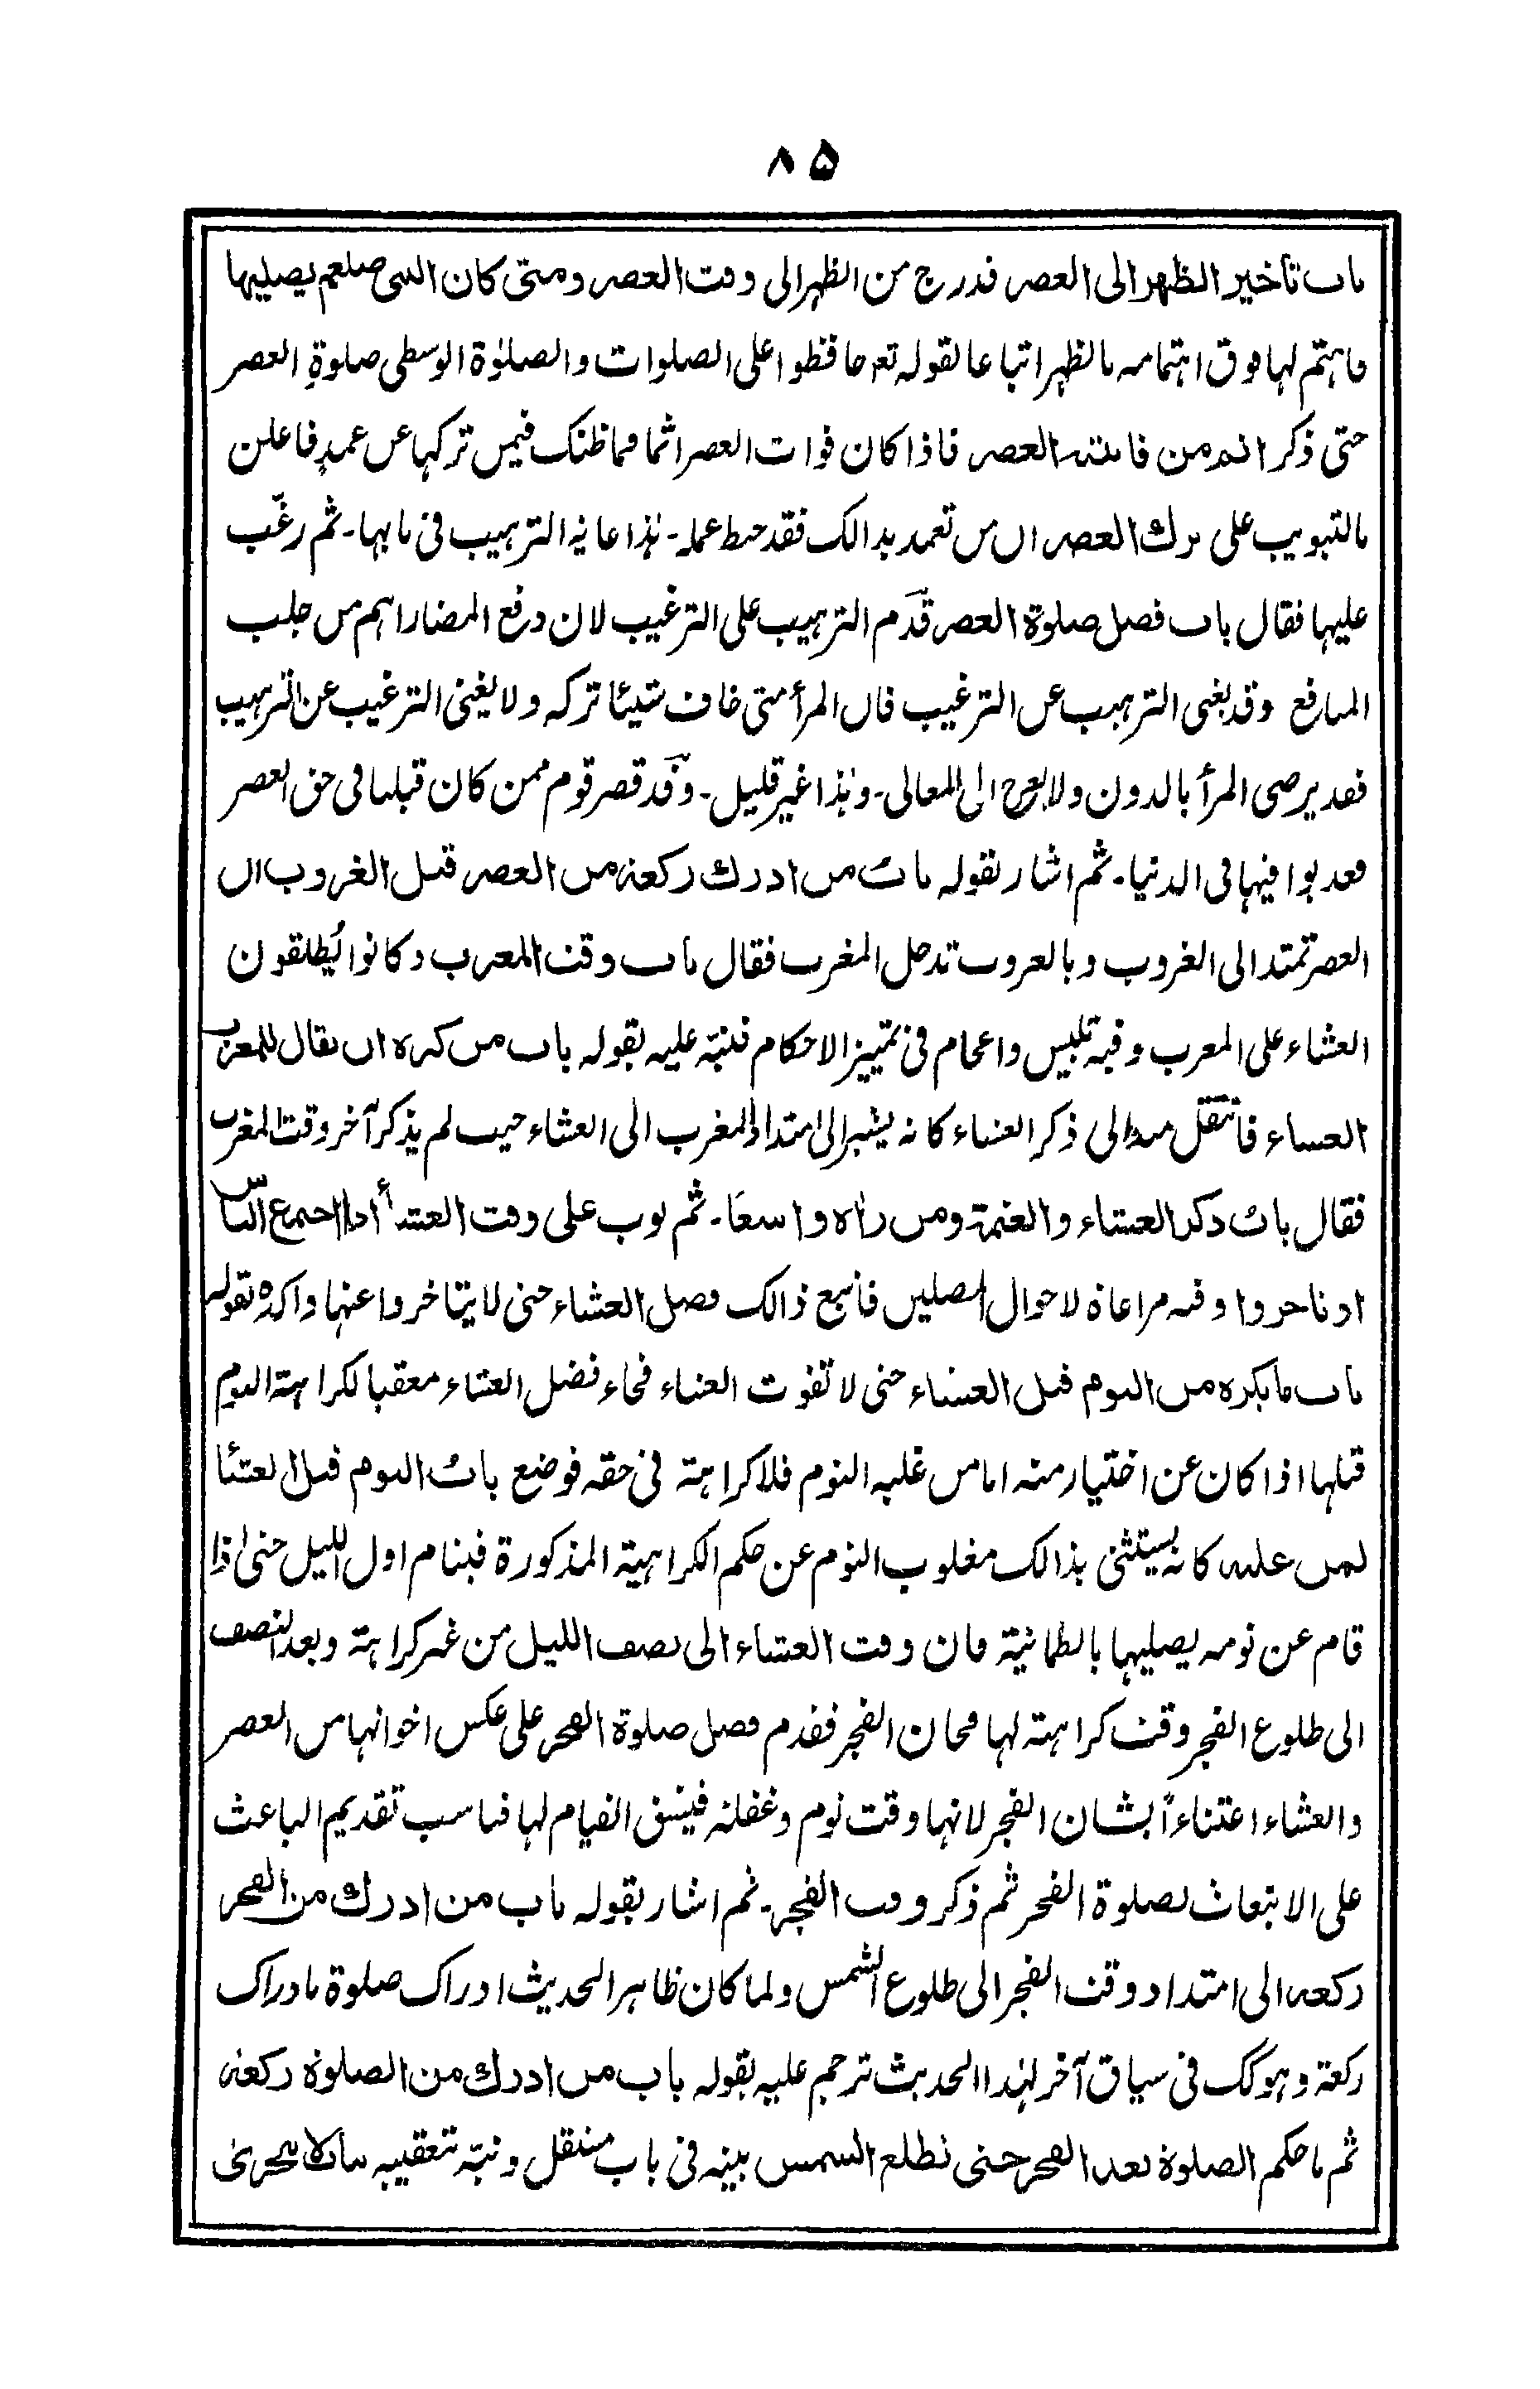 ۸۵
باب تأخير الظهر الى العصر فدرج من الظهر الى وقت العصر ومتى كان النبى صلعم يصليها
فاهتم لها فوق اهتمامه بالظهر اتباعا لقوله تعہ حافظوا على الصلوات والصلوٰة الوسطى صلوةِ العصر
حتى ذكر انه من فاتته العصر فاذا كان فوات العصر اثما فما ظنك فيمن تركها عن عمدٍ فاعلن
بالتبويب على ترك العصر ان من تعمد بذالك فقد حبط عمله - هٰذا غاية الترهيب فى بابها - ثم رغّب
عليها فقال باب فضل صلوة العصر قدّم الترهيب على الترغيب لان دفع المضار اهم من جلب
المنافع وقد يغنى الترهيب عن الترغيب فان المرأ متى خاف شيئا تركه ولا يغنى الترغيب عن الترهيب
فقد يرضى المرأ بالدون ولا يعرج الى المعالى - وهٰذا غير قليل - وقد قصر قوم ممن كان قبلنا فى حق العصر
فعذبوا فيها فى الدنيا - ثم اشار بقوله باب من ادرك ركعة من العصر قبل الغروب ان
العصر تمتد الى الغروب وبالغروب تدخل المغرب فقال باب وقت المغرب وكانوا يُطلقون
العشاء على المغرب وفيه تلبيس واعجام فى تمييز الاحكام فنبّه عليه بقوله باب من كره ان يقال للمغرب
العشاء فانتقل منه الى ذكر العشاء كانه يشير الى امتداد المغرب الى العشاء حيث لم يذكر آخر وقت المغرب
فقال باب ذكر العشاء والعتمة ومن راٰه واسعًا - ثم بوب على وقت العشاء اذا اجتمع الناس
او تاخروا وفيه مراعاة لاحوال المصلين فاتبع ذالك فضل العشاء حتى لا يتاخروا عنها واكده بقوله
باب ما يكره من النوم قبل العشاء حتى لا تفوت العشاء فجاء فضل العشاء معقبا لكراهة النوم
قبلها اذا كان عن اختيار منه اما من غلبه النوم فلا كراهة فى حقه فوضع باب النوم قبل العشاء
لمن غلب كانه يستثنى بذالك مغلوب النوم عن حكم الكراهية المذكورة فينام اول الليل حتى اذا
قام عن نومه يصليها بالطمانية فان وقت العشاء الى نصف الليل من غير كراهة وبعد النصف
الى طلوع الفجر وقت كراهته لها فحان الفجر فقدم فضل صلوة الفجر على عكس اخواتها من العصر
والعشاء اعتناءً بشان الفجر لانها وقت نوم وغفلة فيشق القيام لها فناسب تقديم الباعث
على الانبعاث لصلوة الفجر ثم ذكر وقت الفجر - ثم اشار بقوله باب من ادرك من الفجر
ركعة الى امتداد وقت الفجر الى طلوع الشمس ولما كان ظاهر الحديث ادراك صلوة بادراك
ركعة وهو كك فى سياق آخر لهٰذا الحديث ترجم عليه بقوله باب من ادرك من الصلوة ركعة
ثم ما حكم الصلوة بعد الفجر حتى تطلع الشمس بينه فى باب مستقل ونبّه بتعقيبه باب لا يتحرى